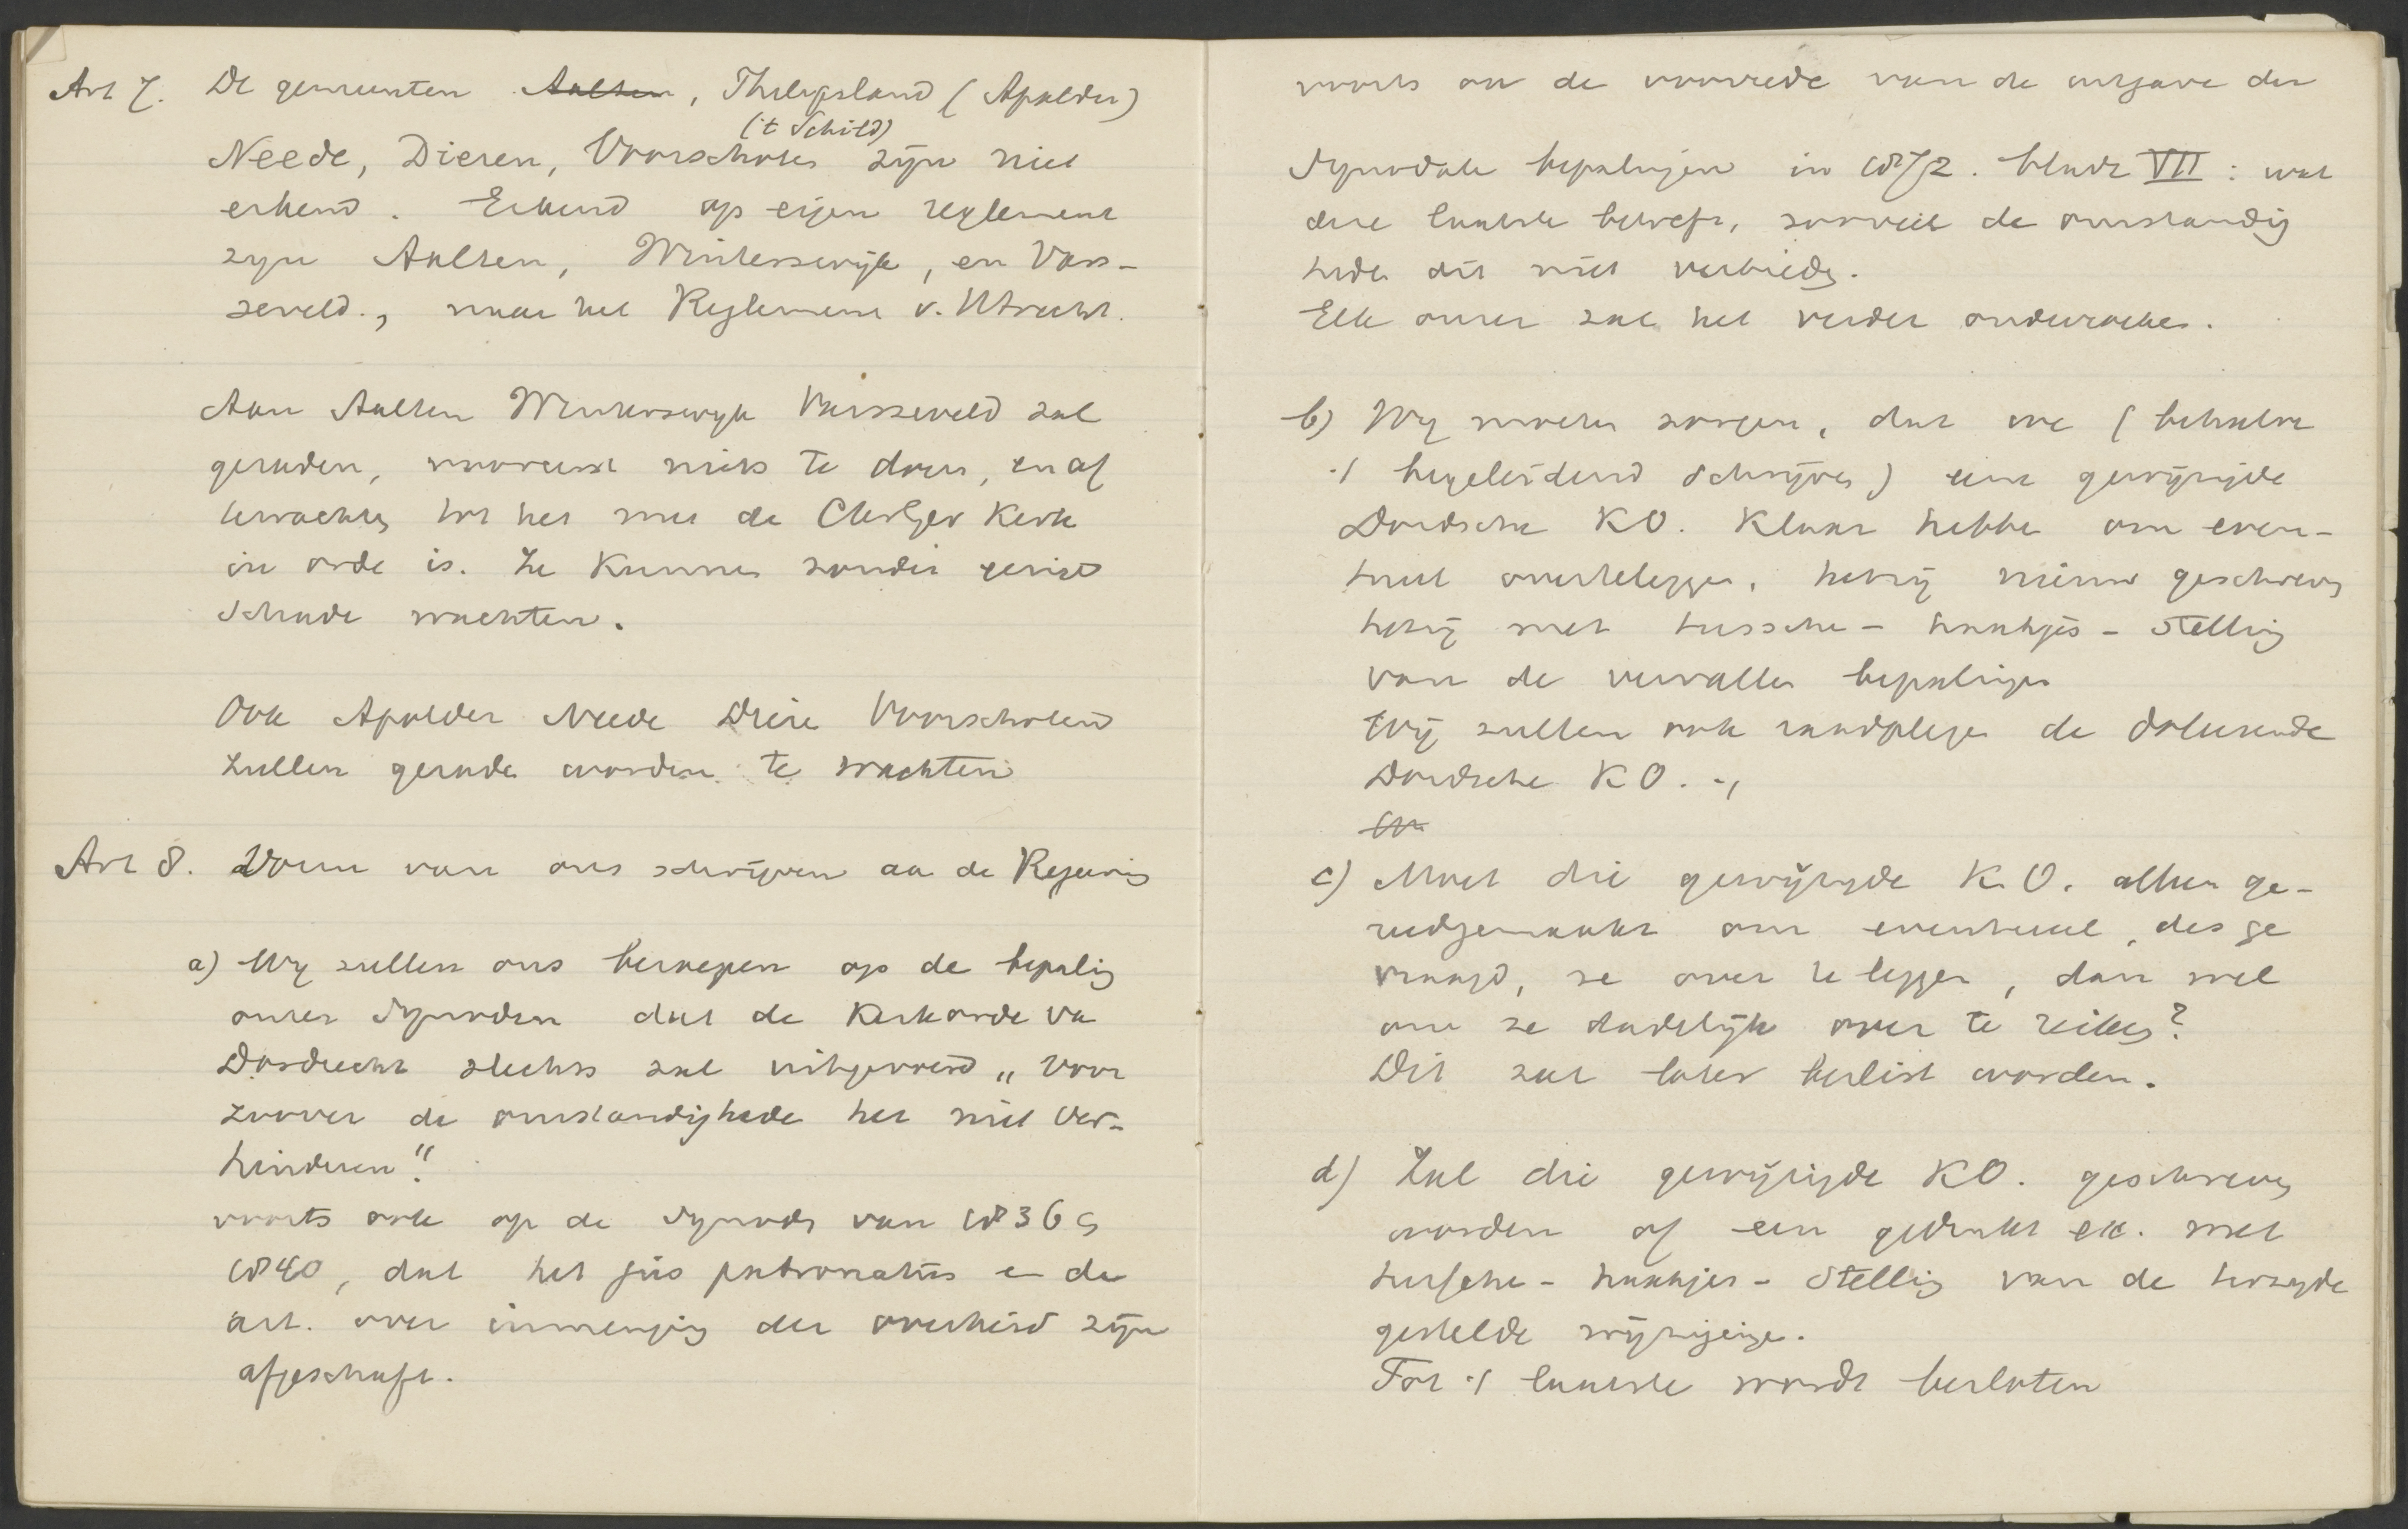 Art 7. De gemeenten ~~Aalten~~, Thilipsland (Apulder)
('t Schild)
Neede, Dieren, Voorschoten zijn niet
erkend. Erkend op eigen reglement
zijn Aalten, Winterswijk, en Vars-
seveld., maar het Reglement v. Utrecht.
Aan Aalten Winterswyk Varsseveld zal
geraden, vooreerst niets te doen, en af
wachten tot het met de Chr Ger Kerk
in orde is. Ze kunnen zonder
schade wachten.
Ook Apulder Neede Diere Voorschoten
zullen gerade worden te wachten
Art 8. Vorm van ons schrijven aa de Regeering
a) Wy zullen ons beroepen op de bepaling
onzer Synoden dat de Kerkorde va
Dordrecht slechts zal uitgevoerd „voor
zoover de omstandighede het niet ver-
hinderen".
voorts ook op de Synode van 1836 &
1840, dat het jus patronatus e de
art. over inmenging der overheid zijn
afgeschaft.
voorts aan de voorrede van de uitgave der
Synodale bepalingen in 1872. bladz VII: wat
deze laatste betreft, zooveel de omstandig
hede dit niet verbiede.
Elk onzer zal het verder onderzoeken.
b) Wy moeten zorgen, dat we (behalve
't begeleidend schrijven) eene gewijzigde
Dordsche KO. klaar hebbe om even-
tueel overteleggen, hetzij nieuw geschreven
hetzij met tussche - haakjes - stelling
van de vervallen bepalingen
Wij zullen ook raadplege de doleerende
Dordsche KO. -,
c) Moet die gewijzigde K.O. alleen ge-
reedgemaakt om eventueel, des ge
vraagd, ze over te leggen, dan wel
om ze dadelijk over te reiken?
Dit zal later beslist worden.
d) Zal die gewijzigde KO. geschreven
worden of een gedrukt ex. met
tussche - haakjes - stelling van de terzyde
gestelde wijzigingen.
Tot 't laatste wordt besloten